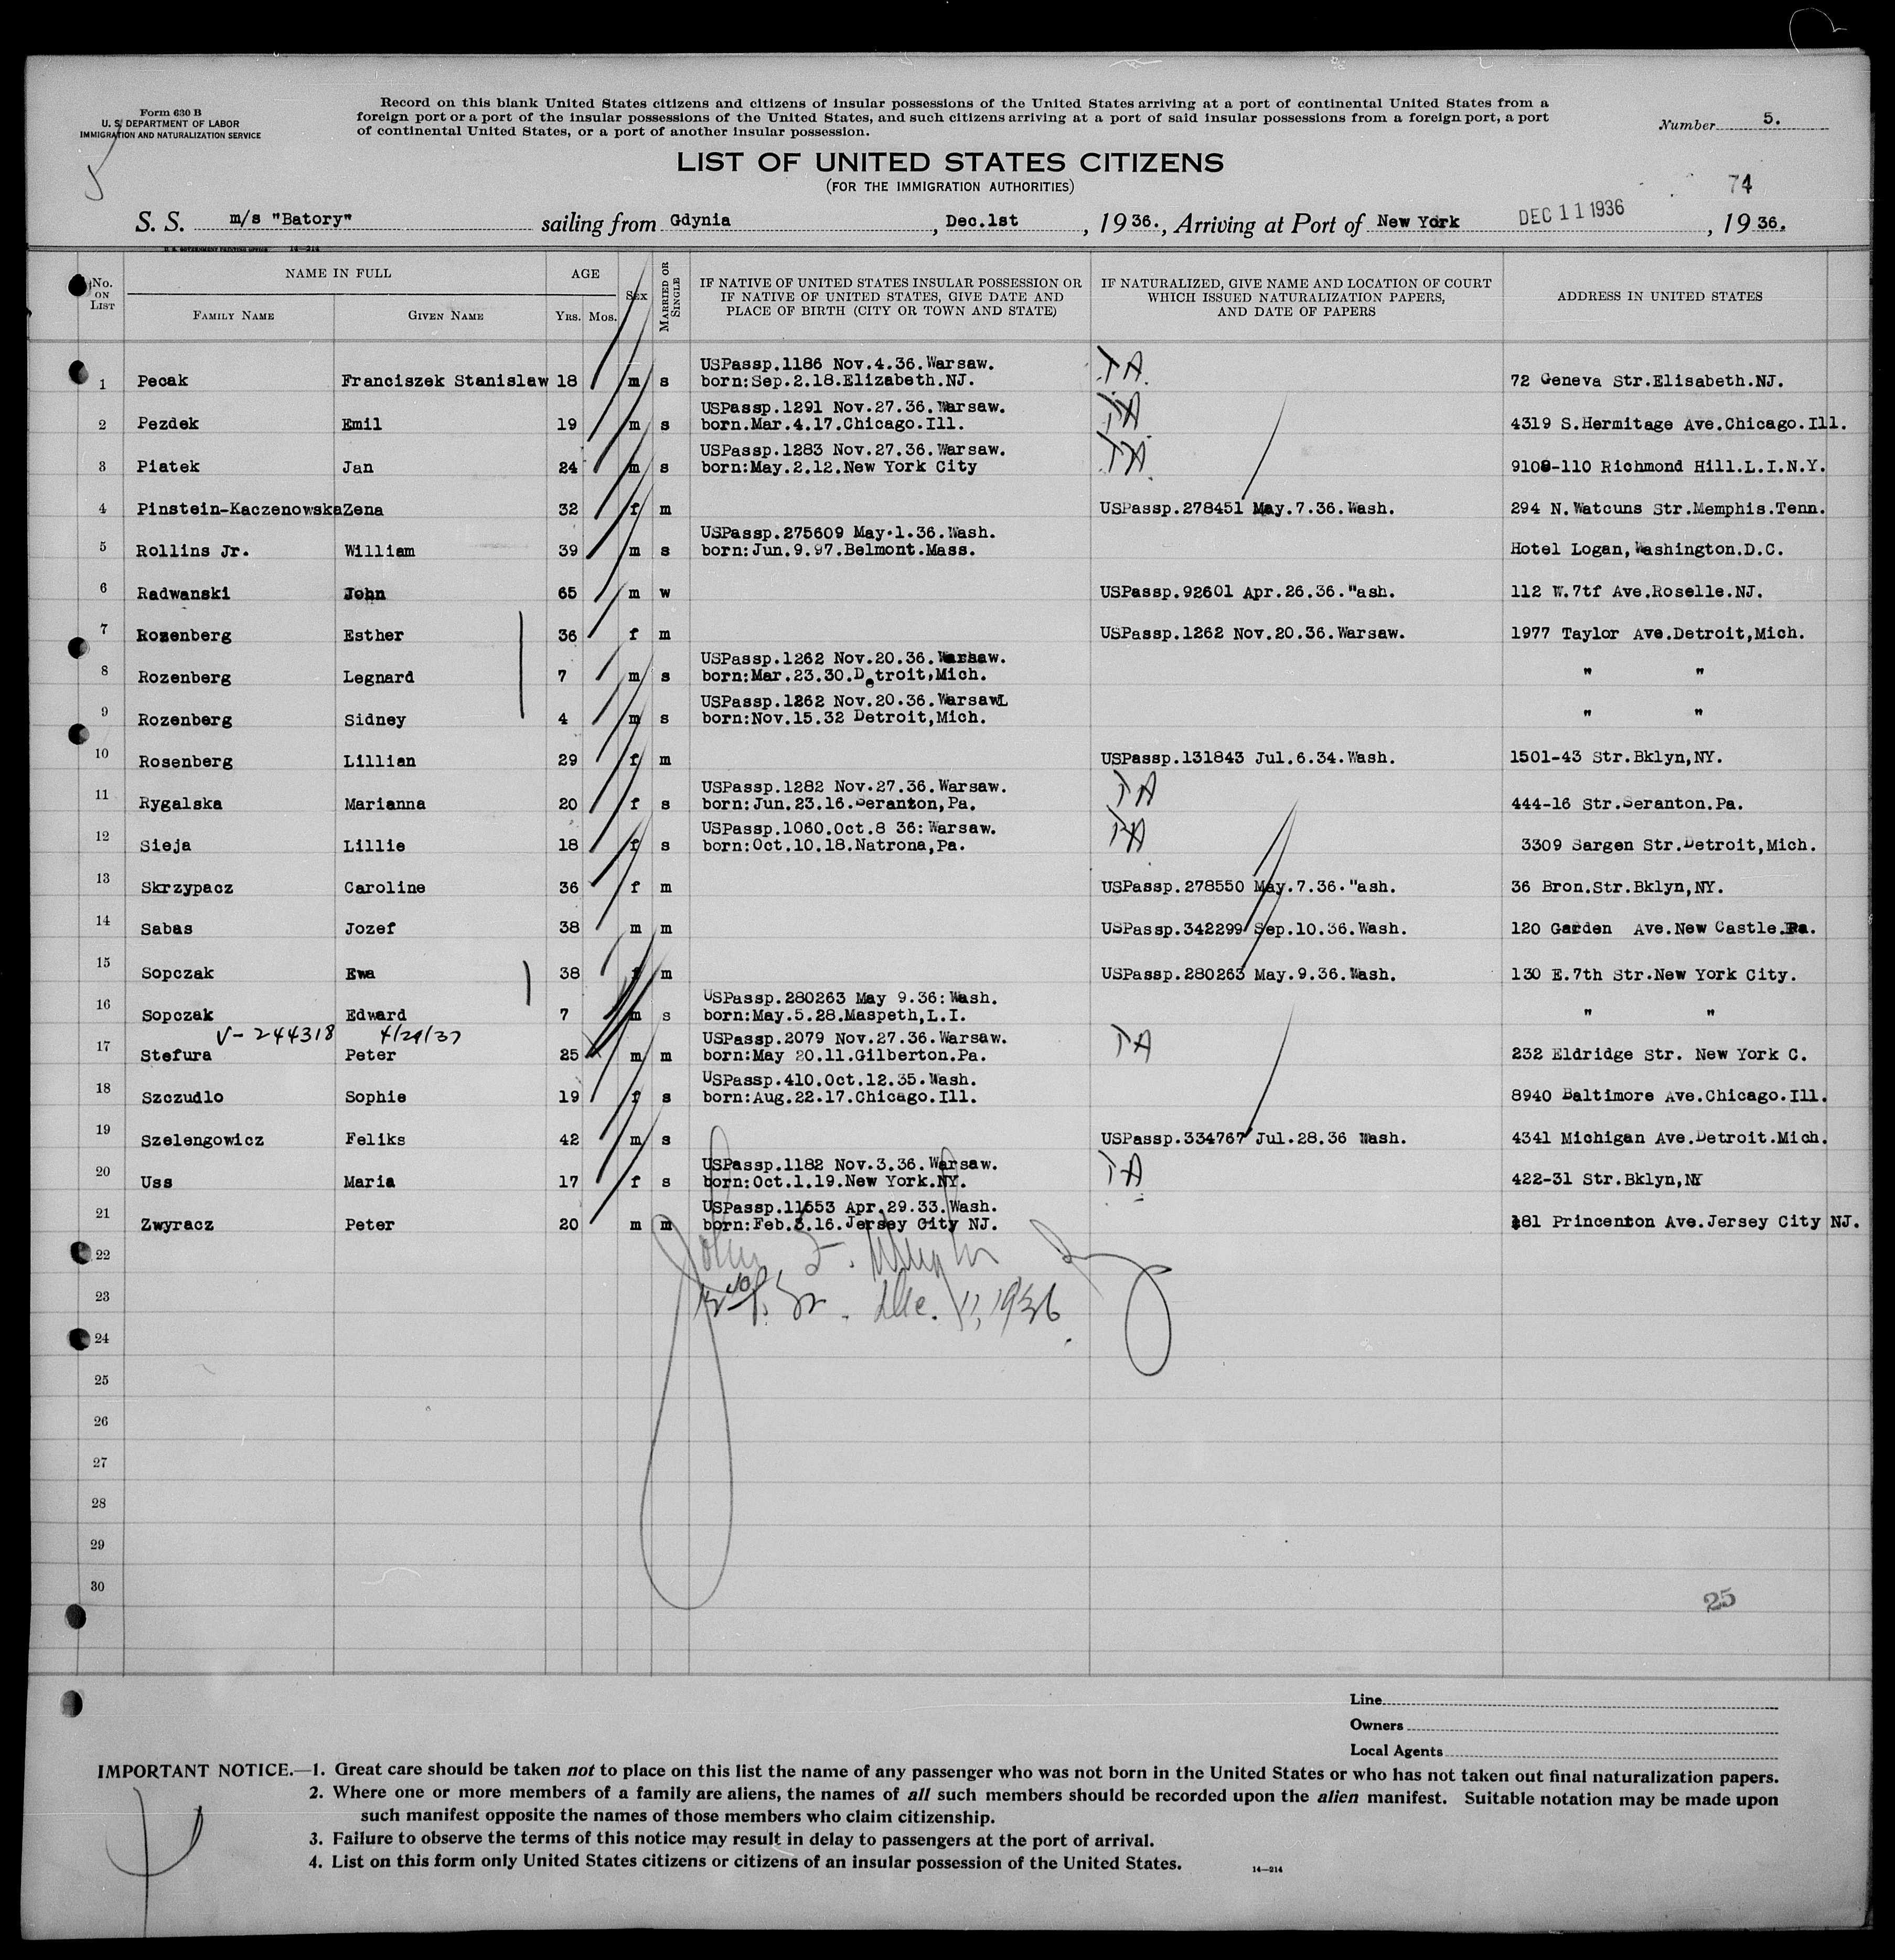 Form 630 B
U. S. DEPARTMENT OF LABOR
IMMIGRATION AND NATURALIZATION SERVICE
Record on this blank United States citizens and citizens of insular possessions of the United States arriving at a port of continental United States from a
foreign port or a port of the insular possessions of the United States, and such citizens arriving at a port of said insular possessions from a foreign port, a port
of continental United States, or a port of another insular possession.
Number 5.
LIST OF UNITED STATES CITIZENS
(FOR THE IMMIGRATION AUTHORITIES)
74
S. S. m/s "Batory" sailing from Gdynia, Dec.1st, 1936., Arriving at Port of New York DEC 11 1936, 1936.
U. S. GOVERNMENT PRINTING OFFICE 14—214
No. ON LIST
NAME IN FULL
FAMILY NAME
GIVEN NAME
AGE
YRS. MOS.
SEX
MARRIED OR SINGLE
IF NATIVE OF UNITED STATES INSULAR POSSESSION OR
IF NATIVE OF UNITED STATES, GIVE DATE AND
PLACE OF BIRTH (CITY OR TOWN AND STATE)
IF NATURALIZED, GIVE NAME AND LOCATION OF COURT
WHICH ISSUED NATURALIZATION PAPERS,
AND DATE OF PAPERS
ADDRESS IN UNITED STATES
USPassp.1186 Nov.4.36.Warsaw. TA
1 Pecak Franciszek Stanislaw 18 m s born:Sep.2.18.Elizabeth.NJ. 72 Geneva Str.Elisabeth.NJ.
USPassp.1291 Nov.27.36.Warsaw. TA
2 Pezdek Emil 19 m s born.Mar.4.17.Chicago.Ill. 4319 S.Hermitage Ave.Chicago.Ill.
USPassp.1283 Nov.27.36.Warsaw. TA
3 Piatek Jan 24 m s born:May.2.12.New York City 9108-110 Richmond Hill.L.I.N.Y.
4 Pinstein-Kaczenowska Zena 32 f m USPassp.278451 May.7.36.Wash. 294 N.Watcuns Str.Memphis.Tenn.
USPassp.275609 May.1.36.Wash.
5 Rollins Jr. William 39 m s born:Jun.9.97.Belmont.Mass. Hotel Logan,Washington.D.C.
6 Radwanski John 65 m w USPassp.92601 Apr.26.36."ash. 112 W.7tf Ave.Roselle.NJ.
7 Rozenberg Esther 36 f m USPassp.1262 Nov.20.36.Warsaw. 1977 Taylor Ave.Detroit,Mich.
USPassp.1262 Nov.20.36.Warsaw.
8 Rozenberg Legnard 7 m s born:Mar.23.30.Detroit,Mich. " "
USPassp.1262 Nov.20.36.WarsawL
9 Rozenberg Sidney 4 m s born:Nov.15.32 Detroit,Mich. " "
10 Rosenberg Lillian 29 f m USPassp.131843 Jul.6.34.Wash. 1501-43 Str.Bklyn,NY.
USPassp.1282 Nov.27.36.Warsaw. TA
11 Rygalska Marianna 20 f s born:Jun.23.16.Seranton,Pa. 444-16 Str.Seranton.Pa.
USPassp.1060.Oct.8 36:Warsaw. TA
12 Sieja Lillie 18 f s born:Oct.10.18.Natrona,Pa. 3309 Sargen Str.Detroit,Mich.
13 Skrzypacz Caroline 36 f m USPassp.278550 May.7.36."ash. 36 Bron.Str.Bklyn,NY.
14 Sabas Jozef 38 m m USPassp.342299 Sep.10.36.Wash. 120 Garden Ave.New Castle.Pa.
15 Sopczak Ewa 38 f m USPassp.280263 May.9.36.Wash. 130 E.7th Str.New York City.
USPassp.280263 May 9.36:Wash.
16 Sopczak Edward 7 m s born:May.5.28.Maspeth,L.I. " "
V-244318 4/29/37 USPassp.2079 Nov.27.36.Warsaw. TA
17 Stefura Peter 25 m m born:May 20.11.Gilberton.Pa. 232 Eldridge Str. New York C.
USPassp.410.Oct.12.35.Wash.
18 Szczudlo Sophie 19 f s born:Aug.22.17.Chicago.Ill. 8940 Baltimore Ave.Chicago.Ill.
19 Szelengowicz Feliks 42 m s USPassp.334767 Jul.28.36 Wash. 4341 Michigan Ave.Detroit.Mich.
USPassp.1182 Nov.3.36.Warsaw. TA
20 Uss Maria 17 f s born:Oct.1.19.New York.NY. 422-31 Str.Bklyn,NY
USPassp.11553 Apr.29.33.Wash.
21 Zwyracz Peter 20 m m born:Feb.3.16.Jersey City NJ. 181 Princenton Ave.Jersey City NJ.
22
John F.
23 Dec. 11, 1936
24
25
26
27
28
29
30
25
Line
Owners
Local Agents
IMPORTANT NOTICE.—1. Great care should be taken not to place on this list the name of any passenger who was not born in the United States or who has not taken out final naturalization papers.
2. Where one or more members of a family are aliens, the names of all such members should be recorded upon the alien manifest. Suitable notation may be made upon
such manifest opposite the names of those members who claim citizenship.
3. Failure to observe the terms of this notice may result in delay to passengers at the port of arrival.
4. List on this form only United States citizens or citizens of an insular possession of the United States.
14—214